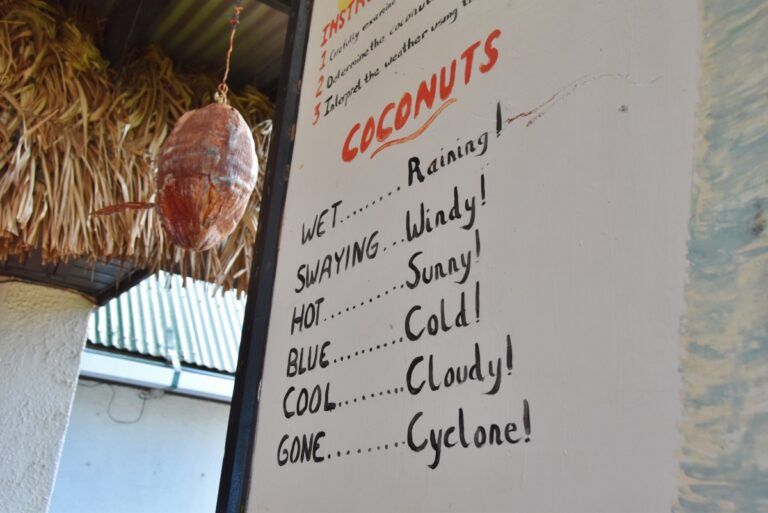 INSTRU
1 Carefully examine
2 Determine the coconut
3 Interpret the weather using th
COCONUTS
WET........ Raining!
SWAYING...Windy!
HOT.......... Sunny!
BLUE......... Cold!
COOL........ Cloudy!
GONE......... Cyclone!